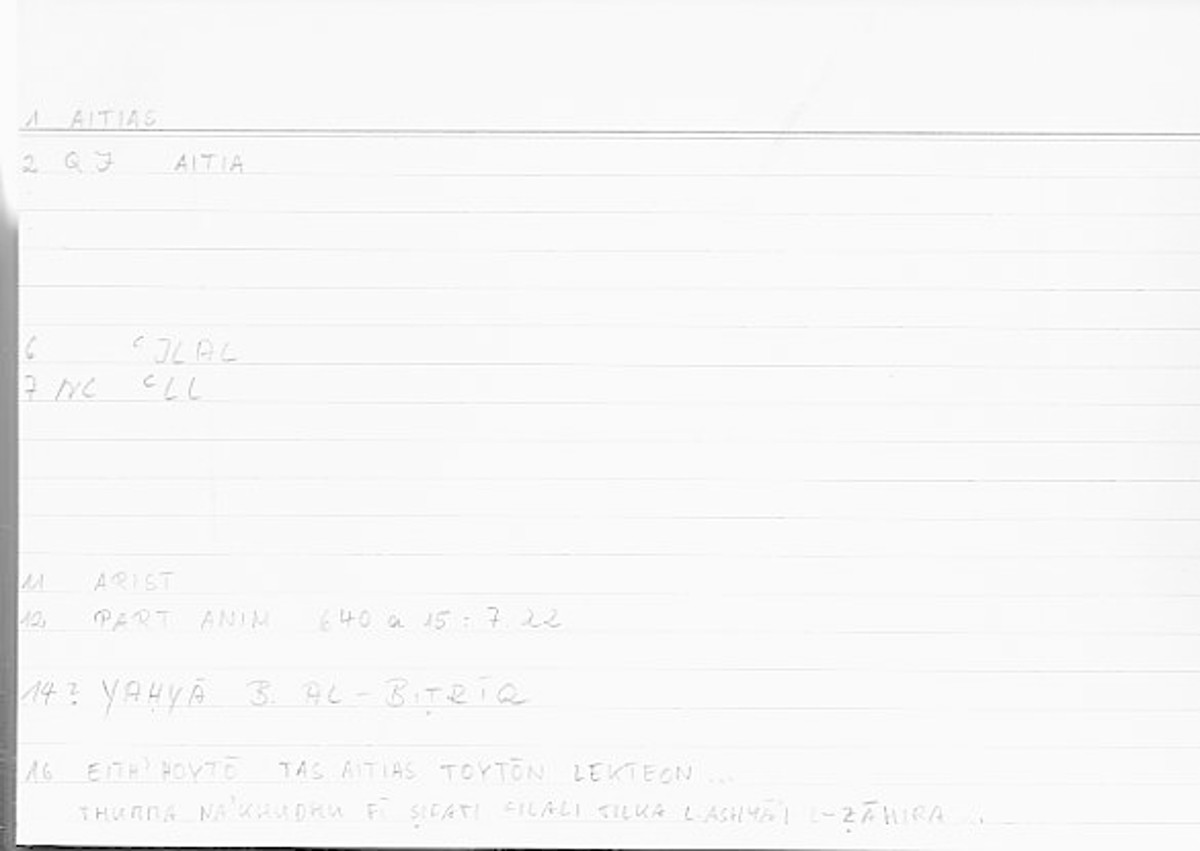 1 AITIAS
2 Q J AITIA
6 ʿJLAL
7 NC ʿLL
11 ARIST
12 PART ANIM 640 a 15 : 7.22
14 ? YAḤYĀ B. AL-BIṬRĪQ
16 EITH'HOYTŌ TAS AITIAS TOYTŌN LEKTEON ...
THUMMA NA'KHUDHU FĪ ṢIFATI ʿILALI TILKA L-ASHYĀ'I L-ẒĀHIRA ...